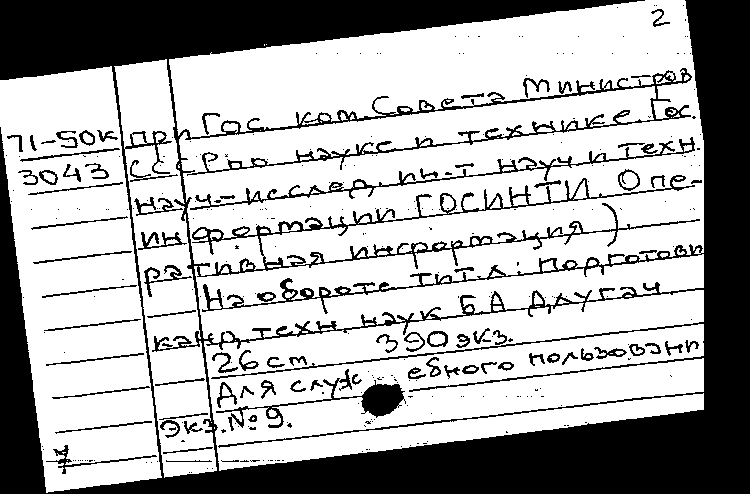 2
71-50К при Гос. ком. Совета Министров
3043 СССР по науке и технике. Гос.
науч.-исслед. ин-т науч. и техн.
информации ГОСИНТИ. Опе-
ративная информация).
На обороте тит. л.: Подготови
канд. техн. наук Б.А Длугач.
26 cm. 390 экз.
Для служебного пользовани
Экз. № 9.
7